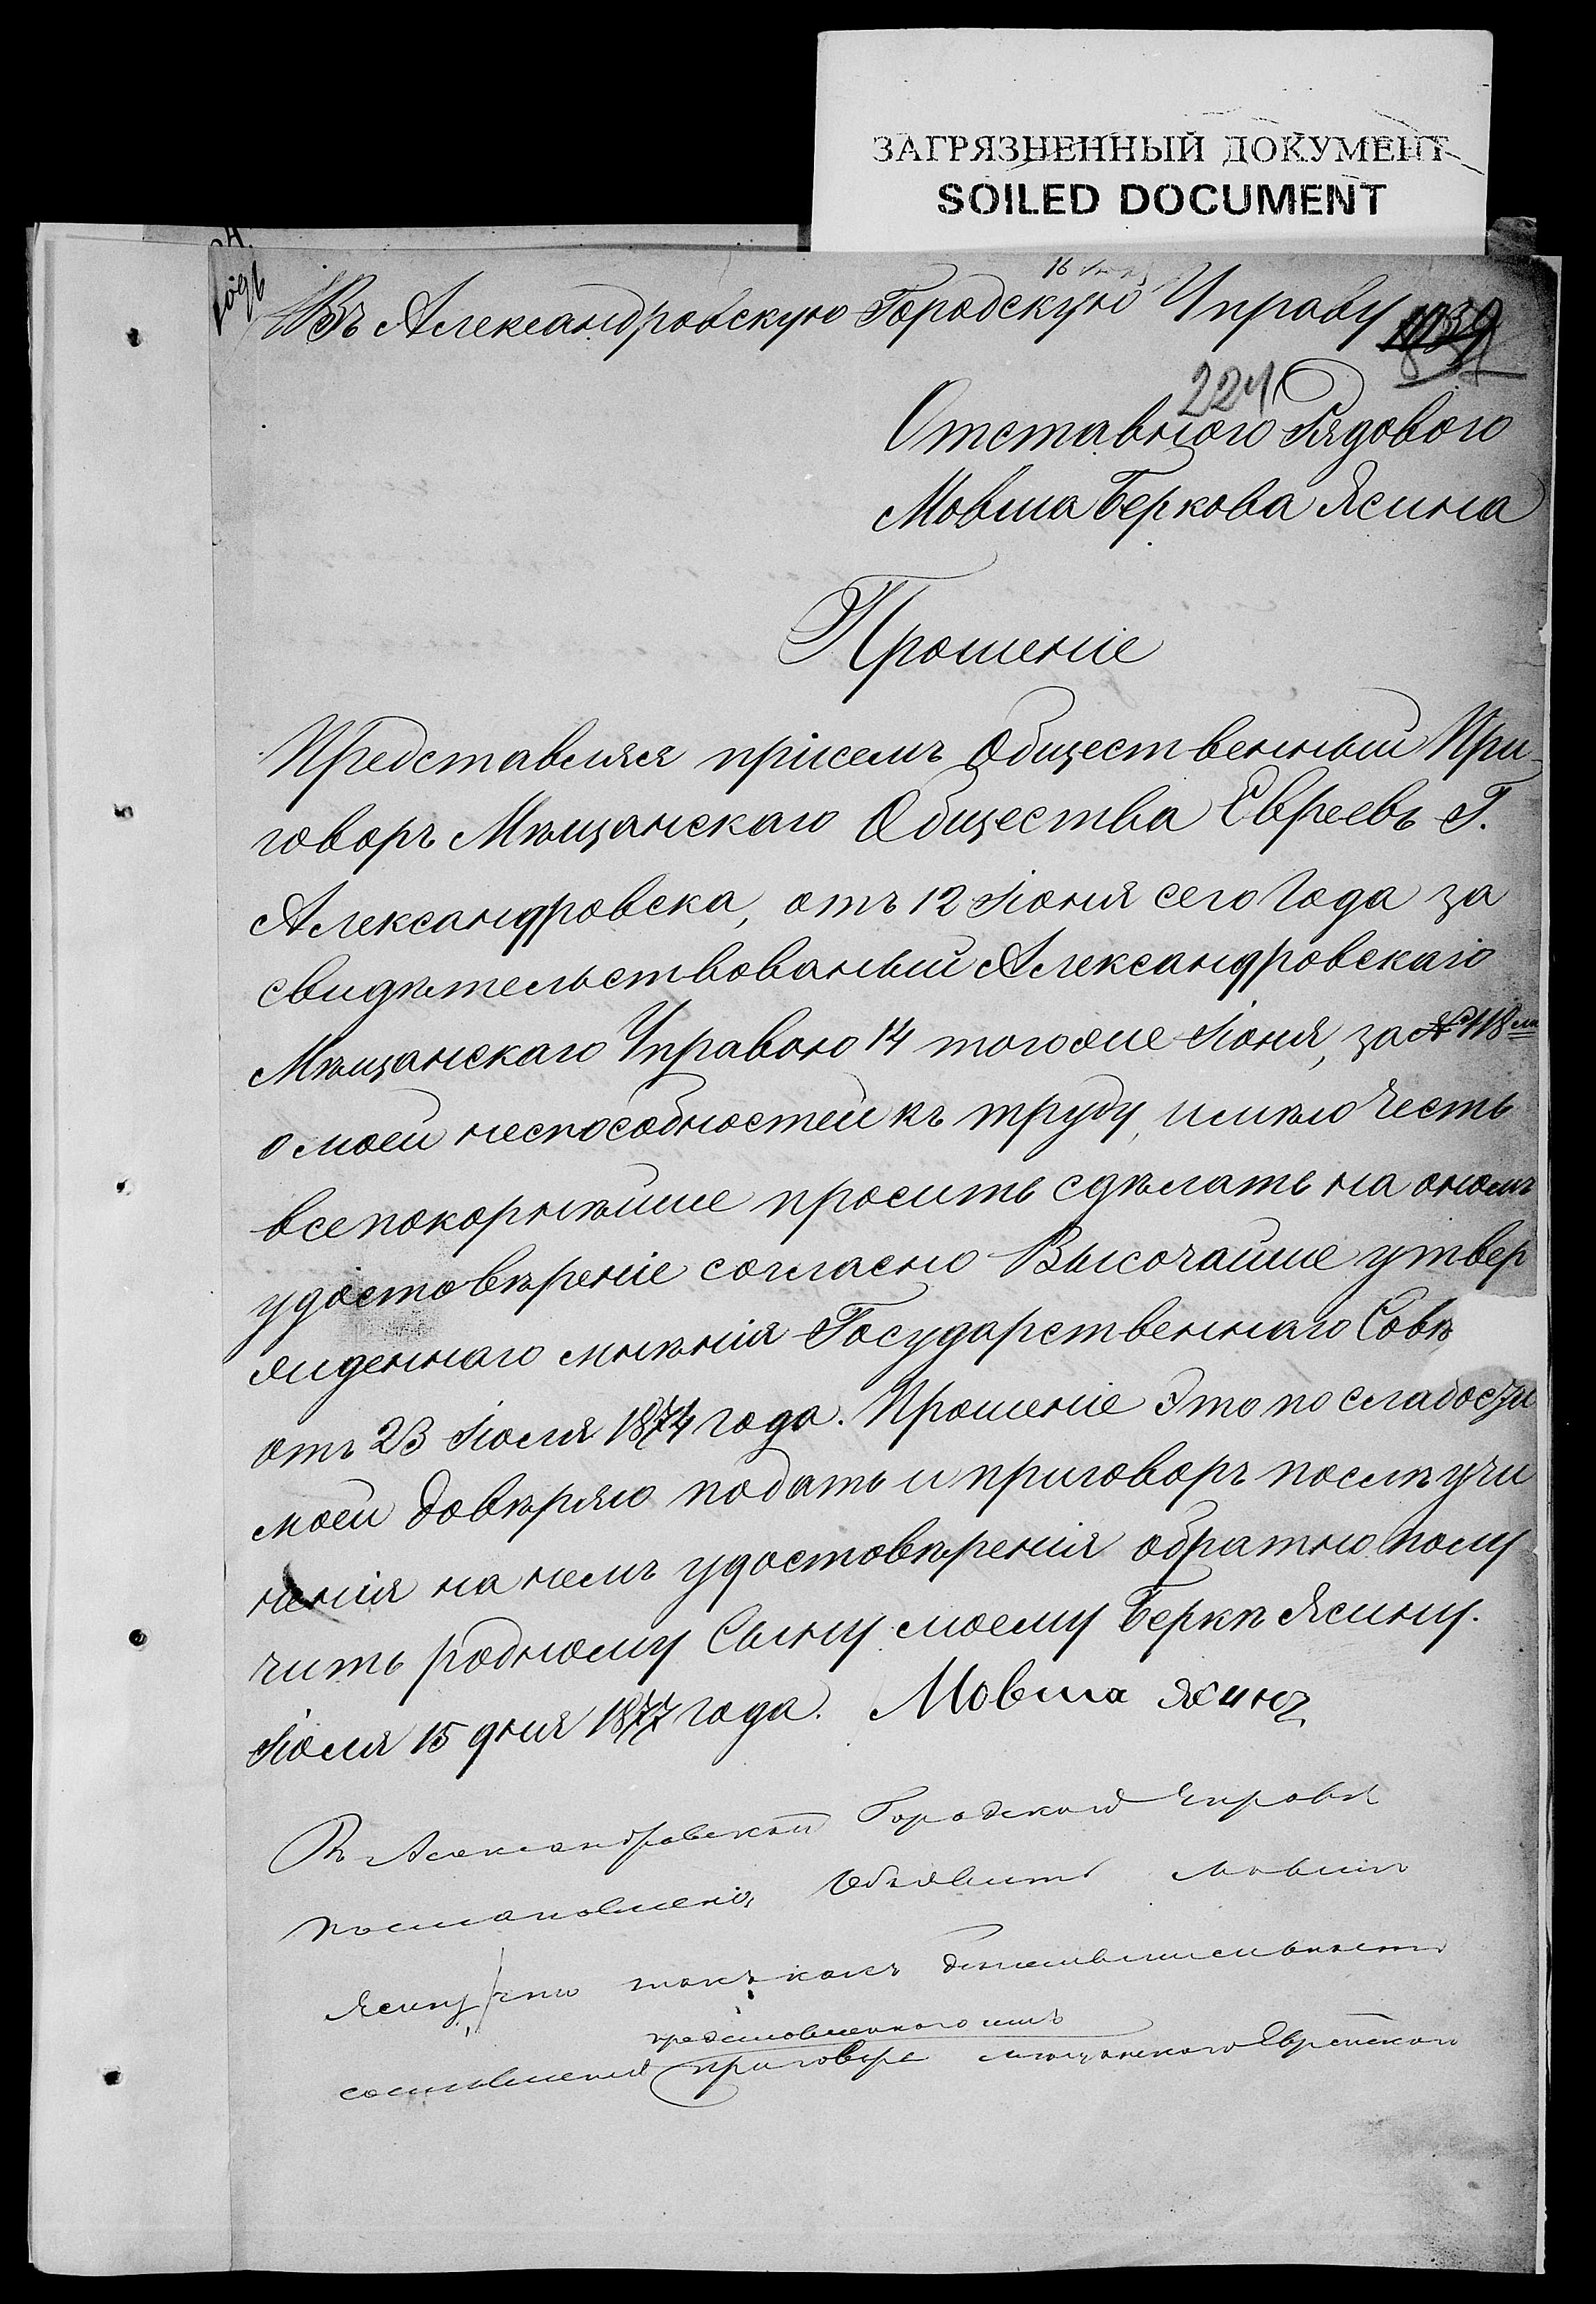 ЗАГРЯЗНЕННЫЙ ДОКУМЕНТ
SOILED DOCUMENT
16
Въ Александровскую Городскую Управу
224
Отставного Рядового
Мовша Беркова Ясина
Прошеніе
Представляя присемъ Общественный При-
говоръ Мѣщанскаго Общества Евреевъ Г.
Александровска, отъ 12 Іюня сего Года за
свидѣтельствованый Александровскаго
Мѣщанскаго Управою 14 тогоже Іюня, за № 118
о моей неспособностей къ труду, имѣю Честь
всепокорнѣйше просить сдѣлать на ономъ
удостовѣреніе согласно Высочайше утвер
жденнаго мнѣнія Государственнаго Совѣ
отъ 23 Іюля 1874 года. Прошеніе Это по слабости
моей довѣряю подать и приговоръ послѣ учи
ненія на немъ удостовѣренія обратно полу
чить родному Сыну моему Беркѣ Ясину.
Іюля 15 дня 1877 года. Мовша Ясинъ
Въ Александровской Городской Управѣ
постановлено, Объявить Мовшѣ
Ясину, что такъ какъ действительность
представленного имъ
составленія приговора мещанского Еврейского